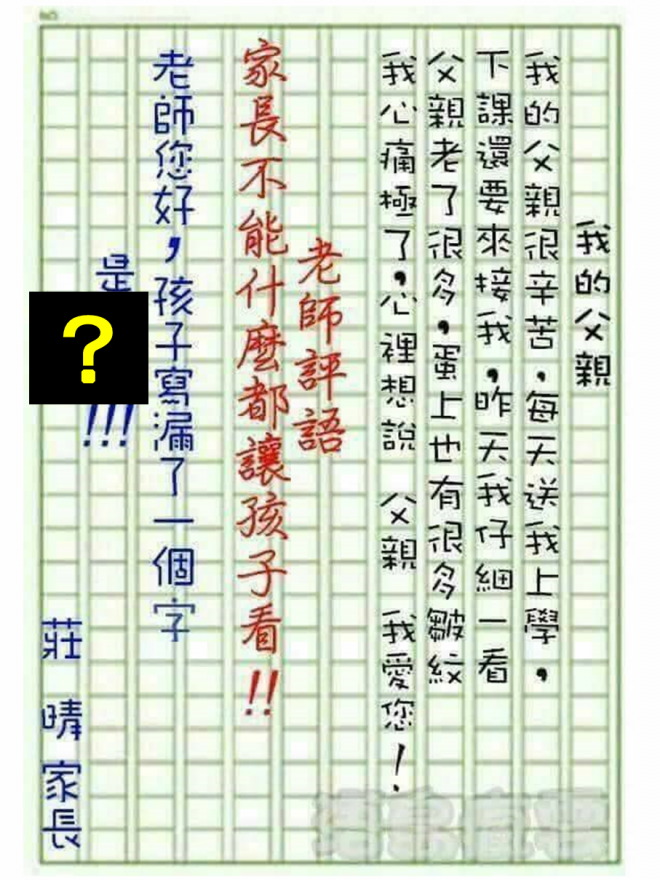 我的父親
我的父親很辛苦，每天送我上學，
下課還要來接我，昨天我仔細一看
父親老了很多，蛋上也有很多皺紋
我心痛極了，心裡想說 父親 我愛您！
老師評語
家長不能什麼都讓孩子看!!
老師您好，孩子寫漏了一個字
是
?
!!!
莊 晴 家長